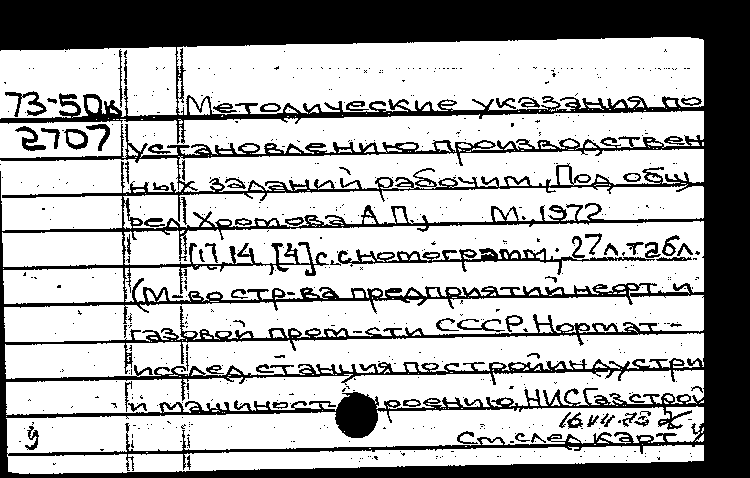 73-50к Методические указания по
2707 установлению производствен
ных заданий рабочим. Под общ
ред. Хромова А.П., М., 1972
[1], 14, [4] с. с номограмм.; 27 л. табл.
(М-во стр-ва предприятий нефт. и
газовой пром-сти СССР. Нормат-
исслед. станция по стройиндустри
и машиностроению „НИСГазстрой
16.VII-73
у См. след карт